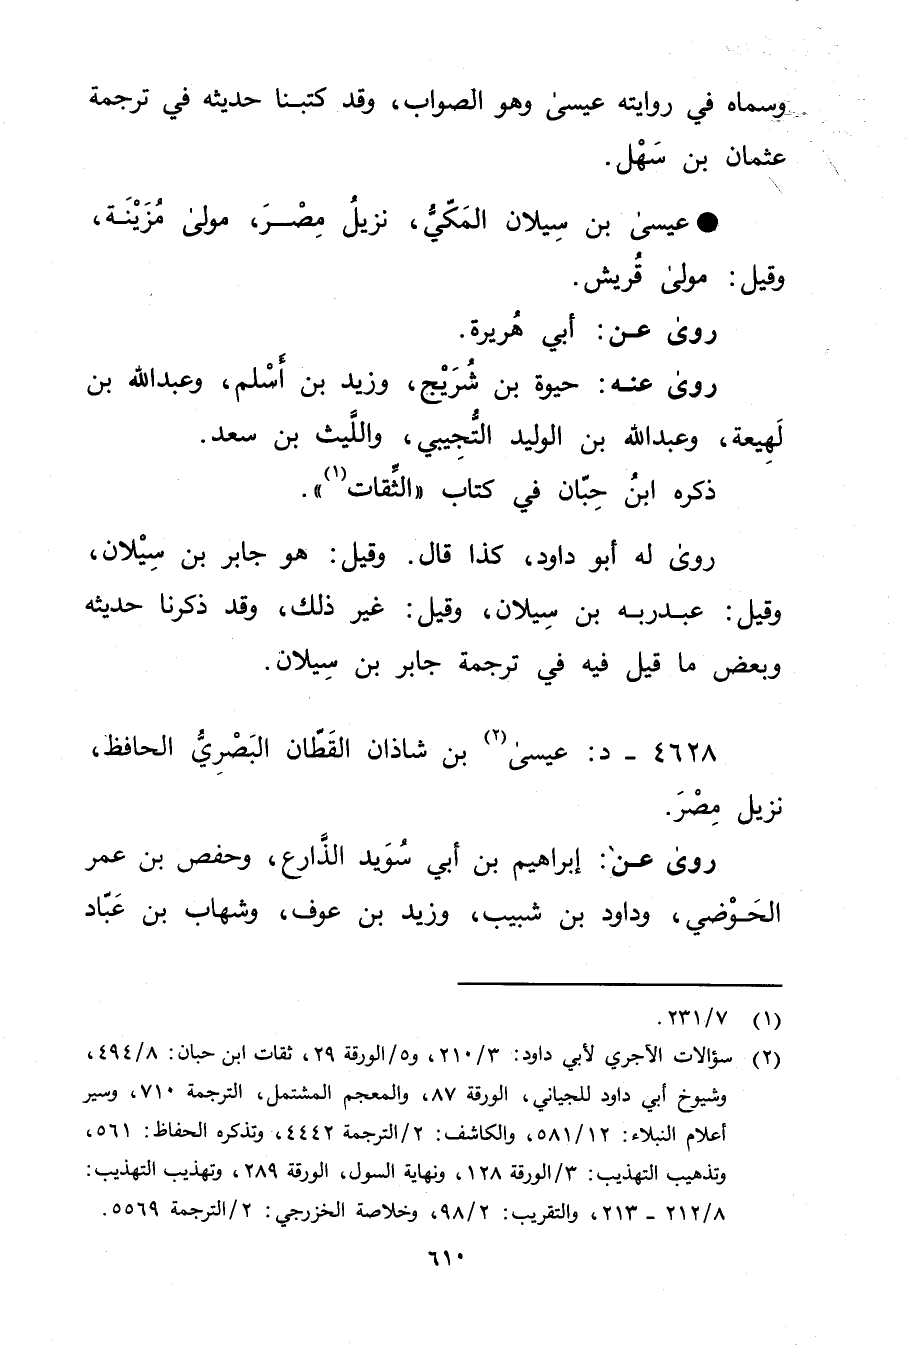 وسماه في روايته عيسىٰ وهو الصواب، وقد كتبنا حديثه في ترجمة
عثمان بن سَهْل.
● عيسىٰ بن سِيلان المَكّيُّ، نزيلُ مِصْرَ، مولىٰ مُزَيْنَة،
وقيل: مولىٰ قُريش.
روىٰ عن: أبي هُريرة.
روىٰ عنه: حيوة بن شُرَيْح، وزيد بن أَسْلم، وعبدالله بن
لَهِيعة، وعبدالله بن الوليد التُّجِيبي، واللَّيث بن سعد.
ذكره ابنُ حِبّان في كتاب «الثِّقات(١)».
روىٰ له أبو داود، كذا قال. وقيل: هو جابر بن سِيْلان،
وقيل: عبدربه بن سِيلان، وقيل: غير ذلك، وقد ذكرنا حديثه
وبعض ما قيل فيه في ترجمة جابر بن سِيلان.
٤٦٢٨ - د: عيسىٰ(٢) بن شاذان القَطّان البَصْرِيُّ الحافظ،
نزيل مِصْرَ.
روىٰ عن: إبراهيم بن أبي سُوَيد الذَّارع، وحفص بن عمر
الحَوْضي، وداود بن شبيب، وزيد بن عوف، وشهاب بن عَبّاد
(١) ٢٣١/٧.
(٢) سؤالات الآجري لأبي داود: ٢١٠/٣، و٥/الورقة ٢٩، ثقات ابن حبان: ٤٩٤/٨،
وشيوخ أبي داود للجياني، الورقة ٨٧، والمعجم المشتمل، الترجمة ٧١٠، وسير
أعلام النبلاء: ٥٨١/١٢، والكاشف: ٢/الترجمة ٤٤٤٢، وتذكره الحفاظ: ٥٦١،
وتذهيب التهذيب: ٣/الورقة ١٢٨، ونهاية السول، الورقة ٢٨٩، وتهذيب التهذيب:
٢١٢/٨ - ٢١٣، والتقريب: ٩٨/٢، وخلاصة الخزرجي: ٢/الترجمة ٥٥٦٩.
٦١٠